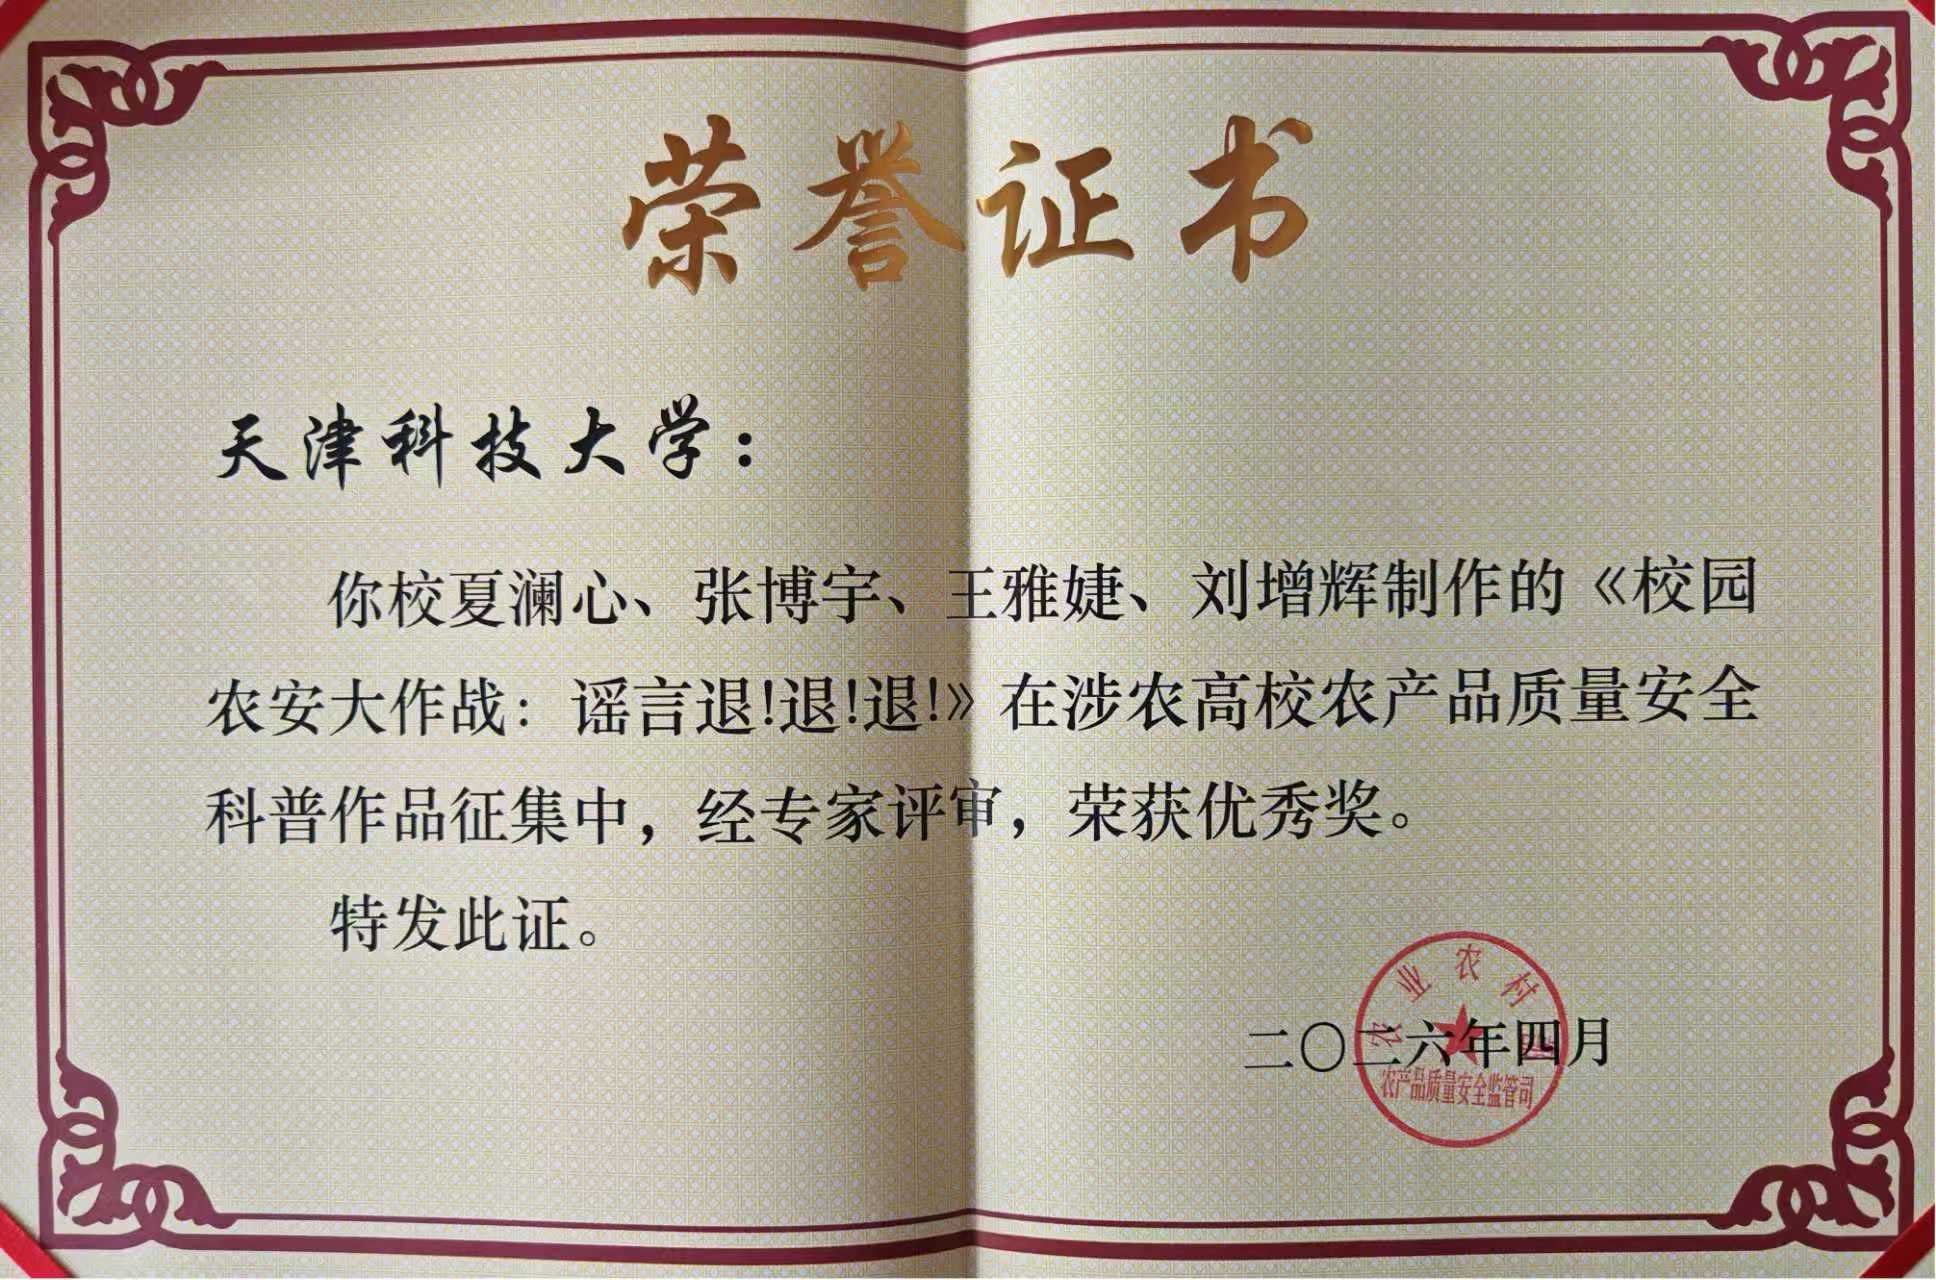 荣誉证书
天津科技大学：
你校夏澜心、张博宇、王雅婕、刘增辉制作的《校园
农安大作战：谣言退!退!退!》在涉农高校农产品质量安全
科普作品征集中，经专家评审，荣获优秀奖。
特发此证。
二〇二六年四月
农业农村部
农产品质量安全监管司